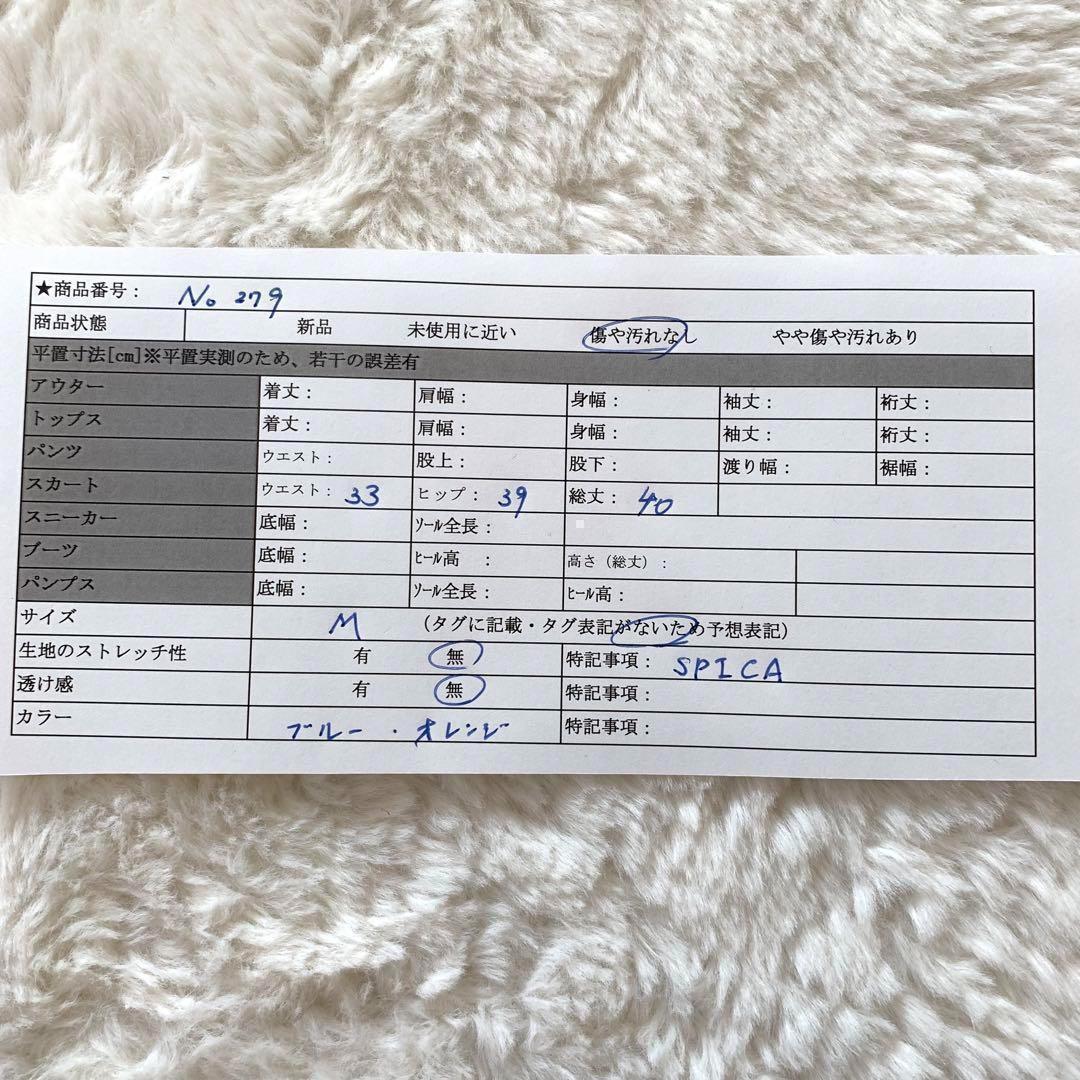 ★商品番号： No 279
商品状態 新品 未使用に近い 傷や汚れなし やや傷や汚れあり
平置寸法[cm]※平置実測のため、若干の誤差有
アウター 着丈： 肩幅： 身幅： 袖丈： 裄丈：
トップス 着丈： 肩幅： 身幅： 袖丈： 裄丈：
パンツ ウエスト： 股上： 股下： 渡り幅： 裾幅：
スカート ウエスト： 33 ヒップ： 39 総丈： 40
スニーカー 底幅： ｿｰﾙ全長：
ブーツ 底幅： ﾋｰﾙ高 ： 高さ（総丈）：
パンプス 底幅： ｿｰﾙ全長： ﾋｰﾙ高：
サイズ M （タグに記載・タグ表記がないため予想表記）
生地のストレッチ性 有 無 特記事項： SPICA
透け感 有 無 特記事項：
カラー ブルー ・ オレンジ 特記事項：